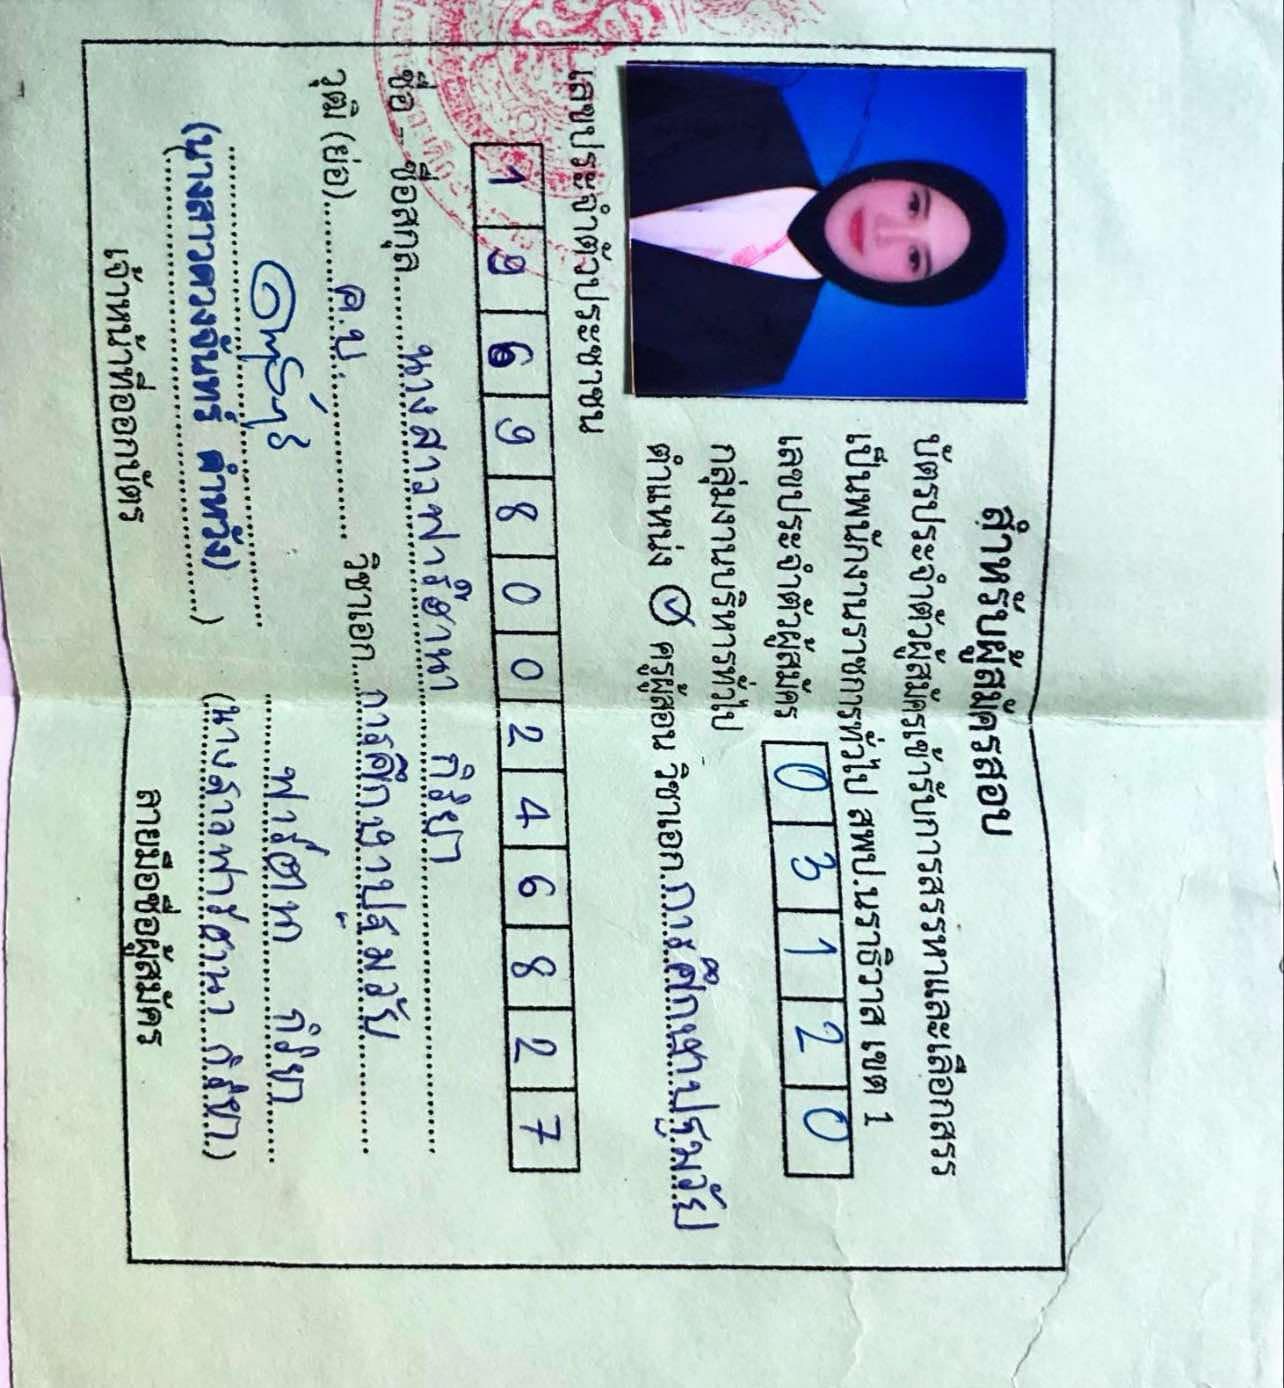 สำหรับผู้สมัครสอบ
บัตรประจำตัวผู้สมัครเข้ารับการสรรหาและเลือกสรร
เป็นพนักงานราชการทั่วไป สพป.นราธิวาส เขต 1
เลขประจำตัวผู้สมัคร 0 3 1 2 0
กลุ่มงานบริหารทั่วไป
ตำแหน่ง ครูผู้สอน วิชาเอก การศึกษาปฐมวัย
เลขประจำตัวประชาชน
1 9 6 9 8 0 0 2 4 6 8 2 7
ชื่อ - ชื่อสกุล นางสาวฟาร์ฮานา กิริยา
วุฒิ (ย่อ) ค.บ. วิชาเอก การศึกษาปฐมวัย
ฟาร์ฮานา กิริยา
(นางสาวดวงจันทร์ ดำทวัง) (นางสาวฟาร์ฮานา กิริยา)
เจ้าหน้าที่ออกบัตร ลายมือชื่อผู้สมัคร